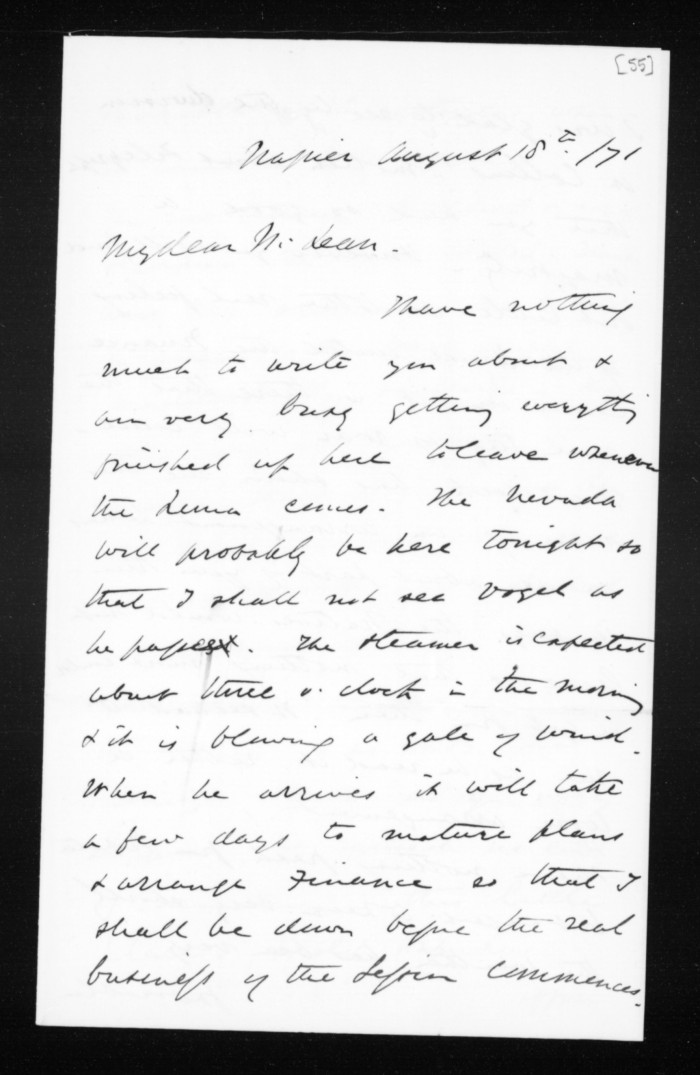 [55]
Napier August 18th /71
My dear McLean.
I have nothing
much to write you about &
am very busy getting everything
finished up here to leave whenever
the Luna comes. The Nevada
will probably be here tonight so
that I shall not see Vogel as
he passes. The steamer is expected
about three o'clock in the morning
& it is blowing a gale of wind.
When he arrives it will take
a few days to mature plans
& arrange Finance so that I
shall be down before the real
business of the Session commences.